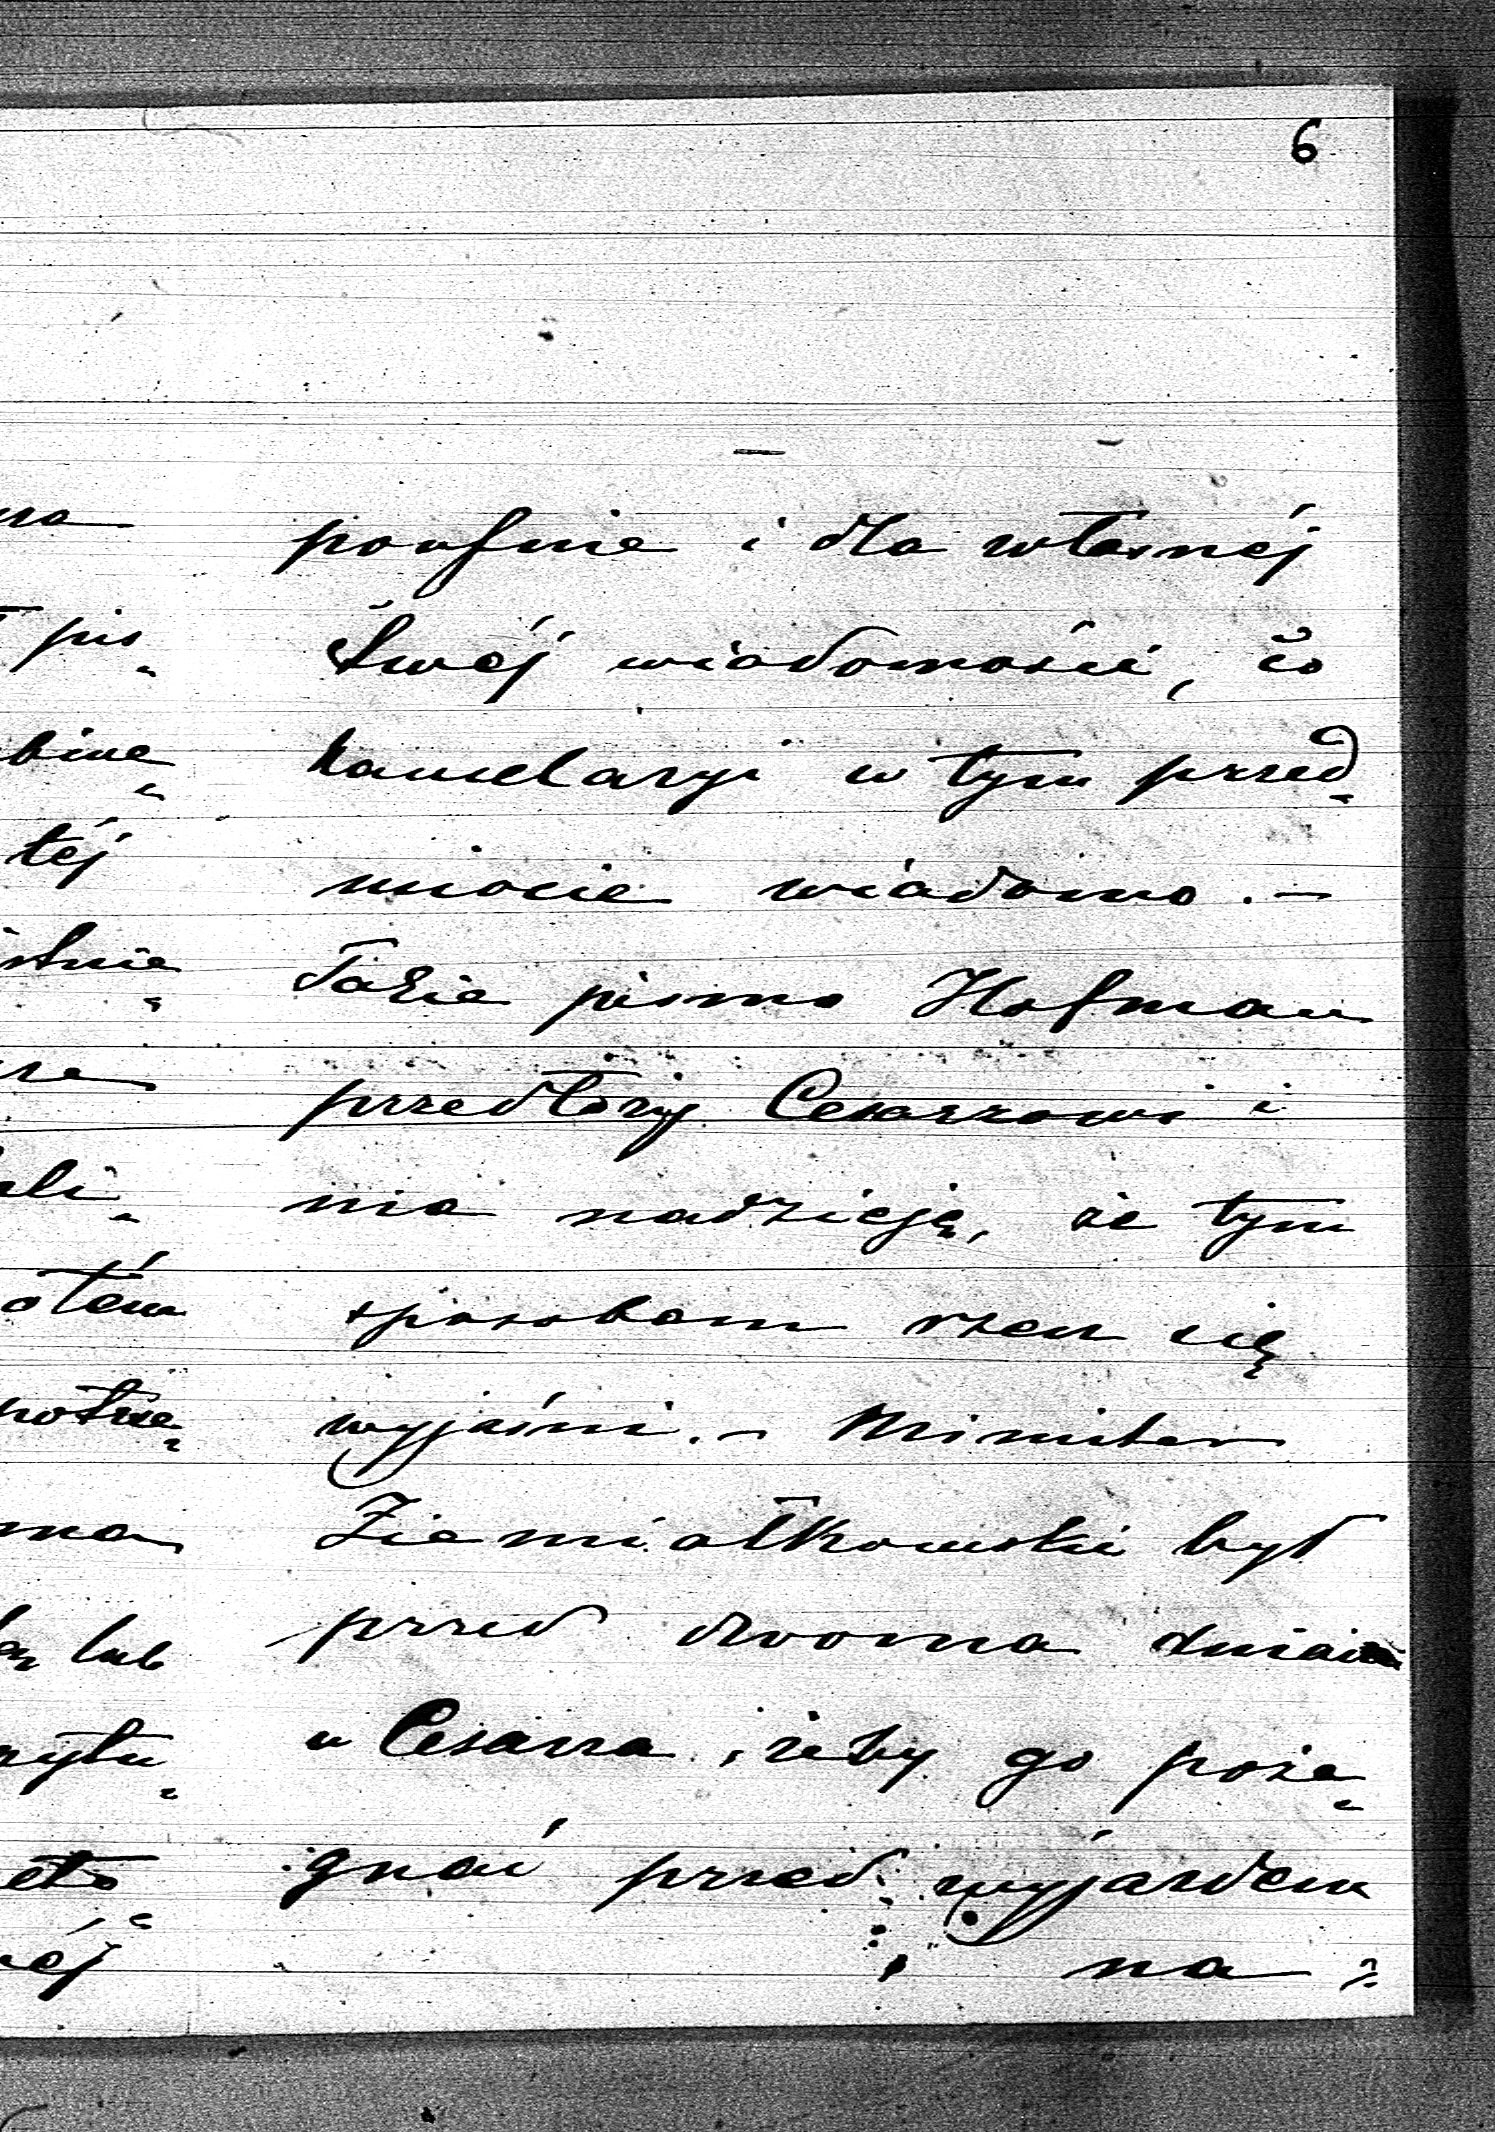 6
na
pis„
binę„
téj
istnie„
re
ali„
otém
potrze„
ma
lub
zytu„
eto„
éj
poufnie i dla własnéj
Swéj wiadomości, co
kancelaryi w tym przed„
miocie wiadomo. –
Takie pismo Hofman
przedłoży Cesarzowi i
ma nadzieję, że tym
sposobem rzecz się
wyjaśni. – Minister
Ziemiałkowski był
przed dwoma dniami
u Cesarza, żeby go poże„
gnać przed wyjazdem
na